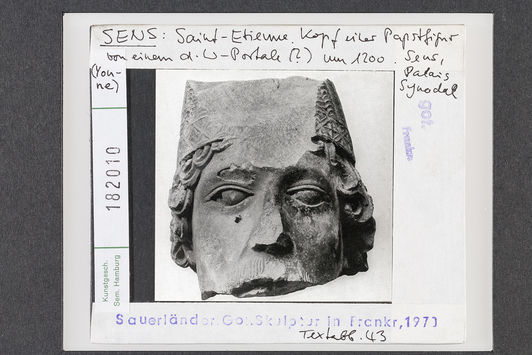 SENS: Saint-Etienne. Kopf einer Papstfigur
von einem d. W-Portale (?) um 1200. Sens,
(Yon-
ne)
Palais
Synodal
got.
Frankr.
182010
Kunstgesch.
Sem. Hamburg
Sauerländer Got.Skulptur in Frankr,1970
Textabb. 43